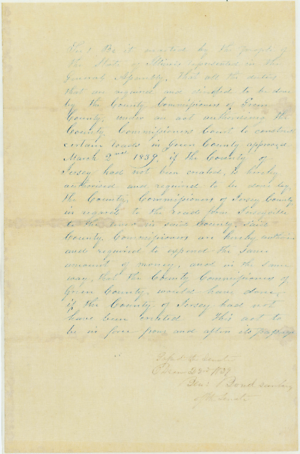 Sec 1 Be it enacted by the people of
the State of Illinois represented in the
General Assembly, That all the duties
that are required and directed to be done
by the County Commissioners of Green
County, under an act authorizing the
County Commissioners Court to construct
certain roads in Green County approved
March 2nd 1839, if the County of
Jersey had not been created, is hereby
authorised and required to be done by
the County Commissioners of Jersey County
in regards to the road from
to the in said County. Said
County Commissioners are hereby authorised
and required to expend the same
amount of money, and in the same
way, that the County Commissioners of
Green County, would have done,
if the County of Jersey had not
have been created. This act to
be in force from and after its passage
1839